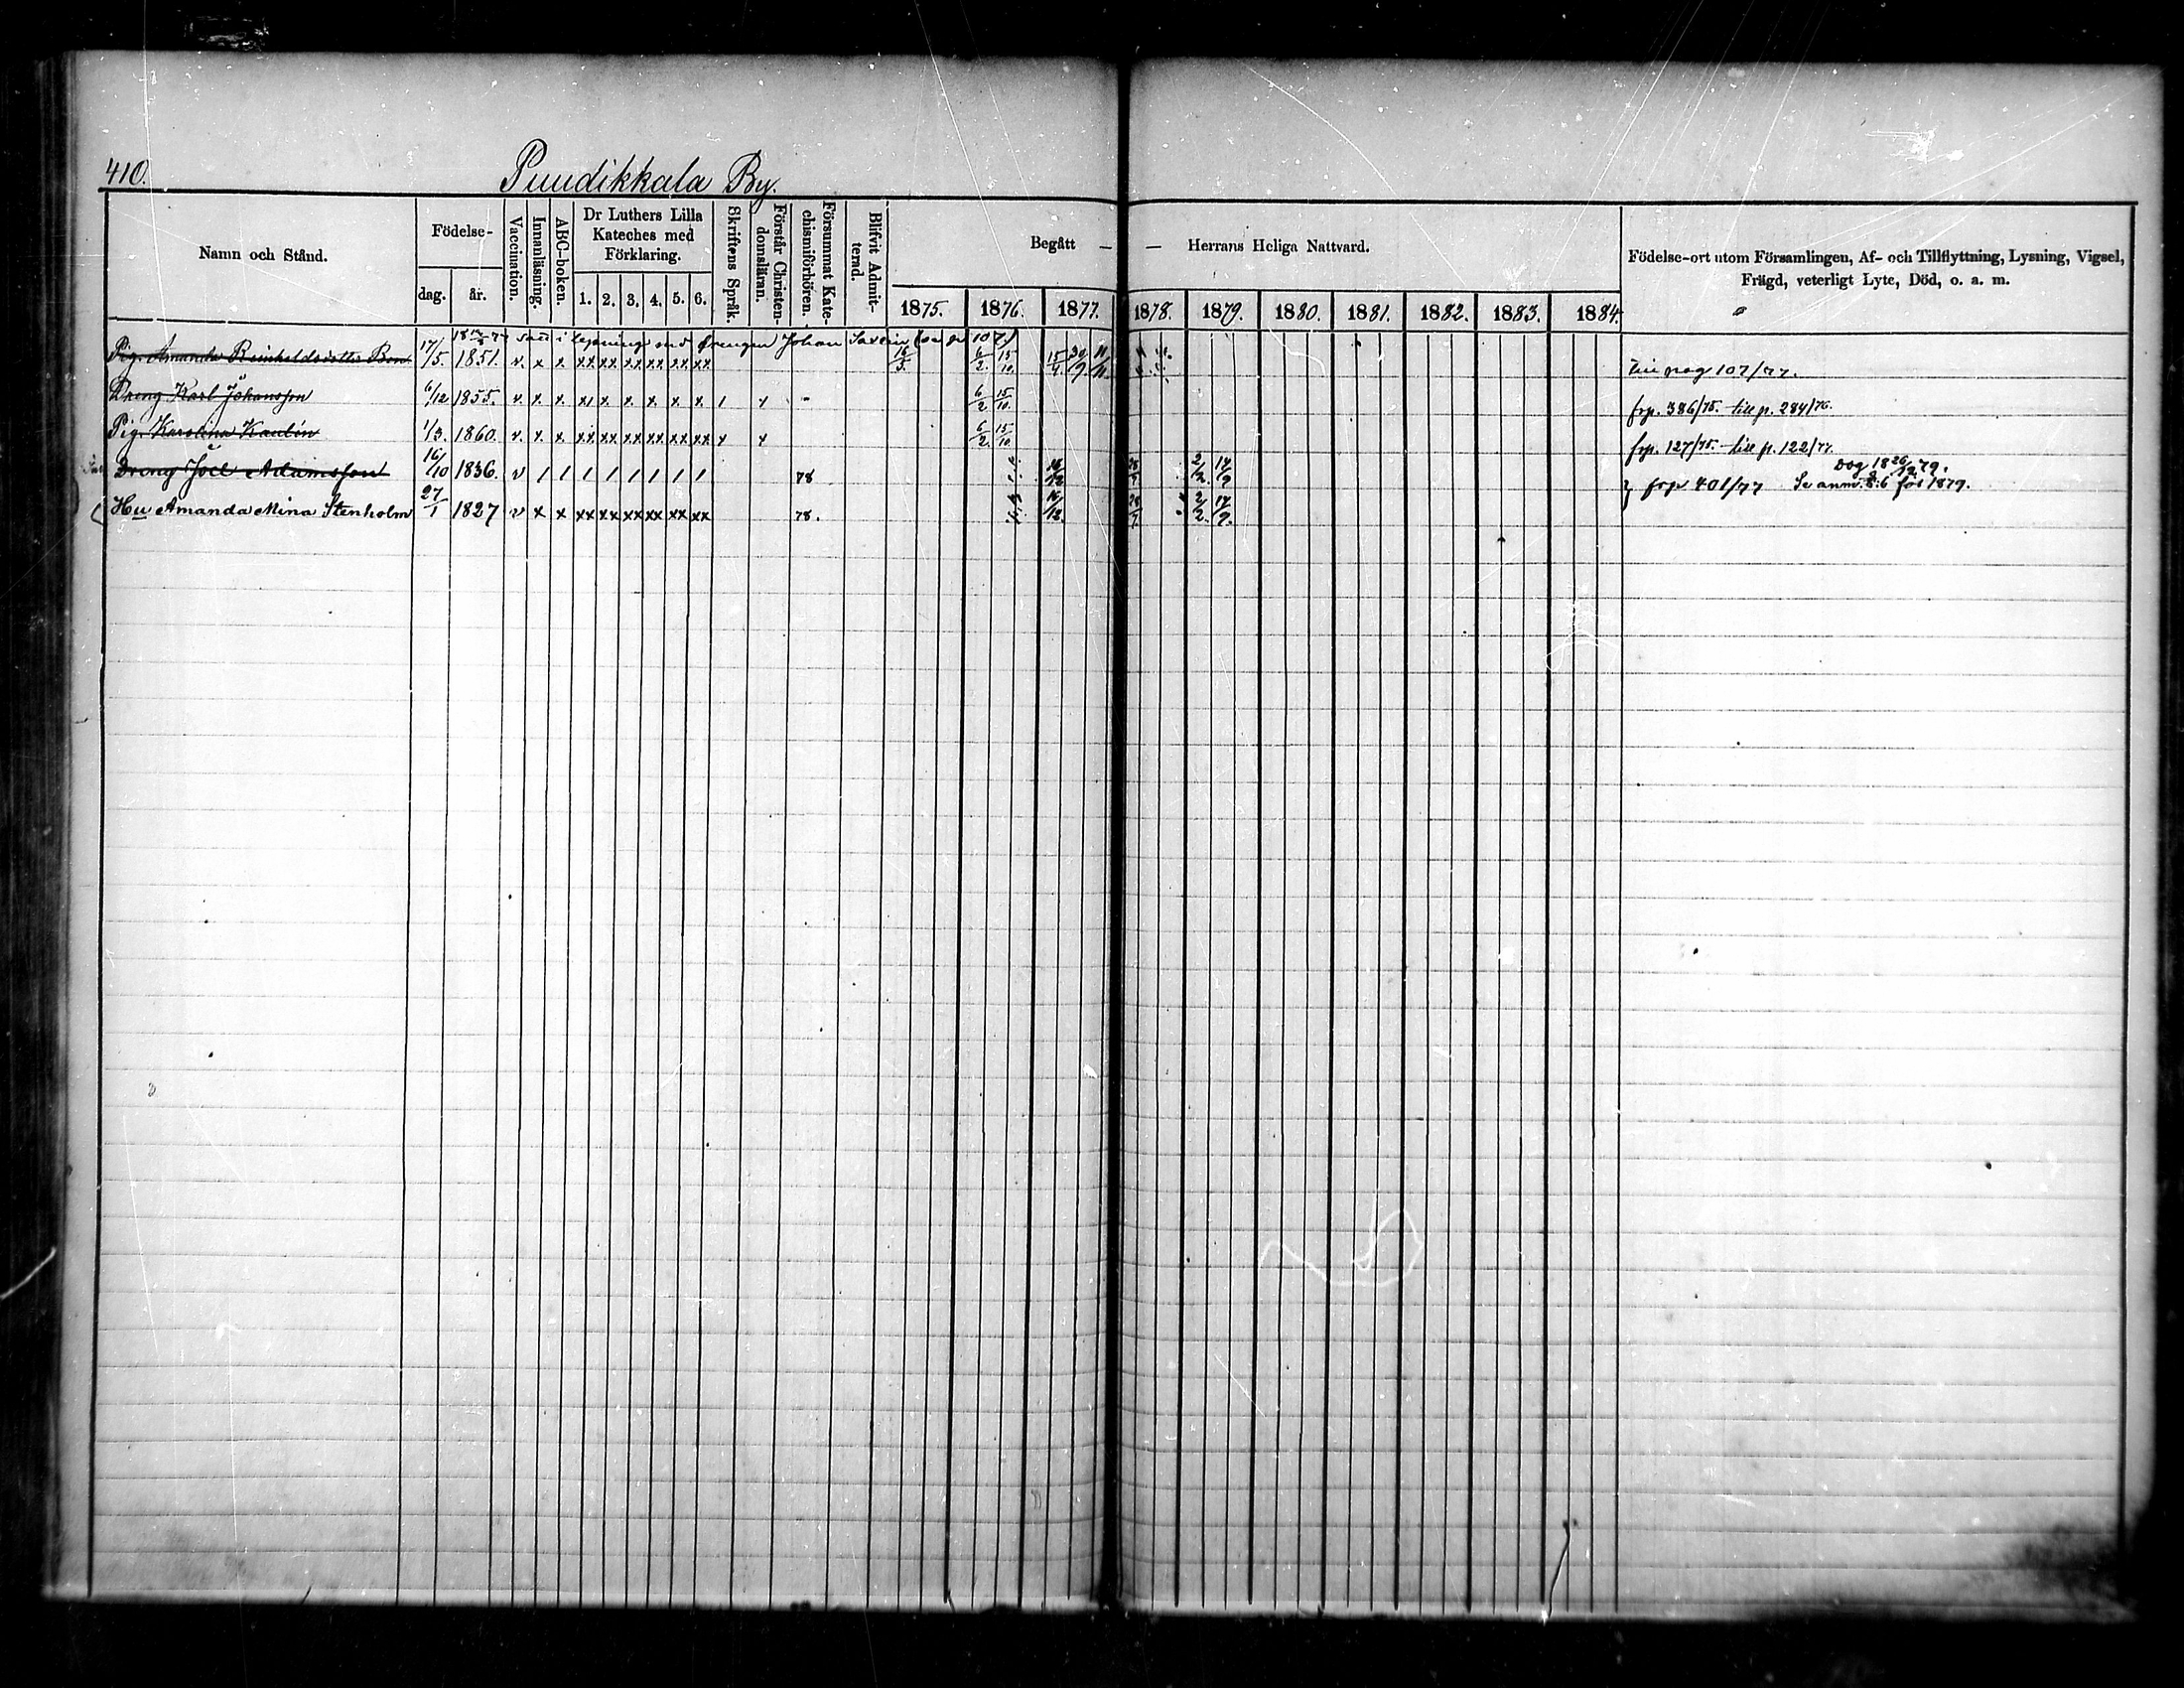 410.
Puudikkala By.
Namn och Stånd.
Födelse-
dag.
år.
Vaccination.
Innanläsning.
ABC-boken.
Dr Luthers Lilla
Kateches med
Förklaring.
1. 2. 3. 4. 5. 6.
Skriftens Språk.
Förstår Christen-
domsläran.
Försummat Kate-
chismiförhören.
Blifvit Admit-
terad.
Begått — — Herrans Heliga Nattvard.
1875. 1876. 1877. 1878. 1879. 1880. 1881. 1882. 1883. 1884.
Födelse-ort utom Församlingen, Af- och Tillflyttning, Lysning, Vigsel,
Frägd, veterligt Lyte, Död, o. a. m.
i lysning med Drengen Johan Saxein 107)
Pig. Amanda Reinholdsdotter 17/5. 1851. v. x x xx xx xx xx xx xx 16/5. 6/2. 15/10. 15/4. 30/9. 107/77.
Dreng Karl Johansson 6/12 1855. v. x. x. x1 x. x. x. x. x. 1 x 6/2 15/10. frp. 386/75. till p. 284/76.
Pig. Karolina Kaulin 1/3. 1860. v. x. x. xx xx xx xx xx xx x x 6/2. 15/10. frp. 127/75. till p. 122/77.
Dreng Joel Adamsson 16/10 1836. v / / / / / / / / 78 16/12 2/2. 14/9 Dog 18 26/12 79.
frp 401/77 Se anm. för 1879.
Hu Amanda Mina Stenholm 27/1 1827 v x x xx xx xx xx xx xx 78. 16/12. 2/2. 14/9.